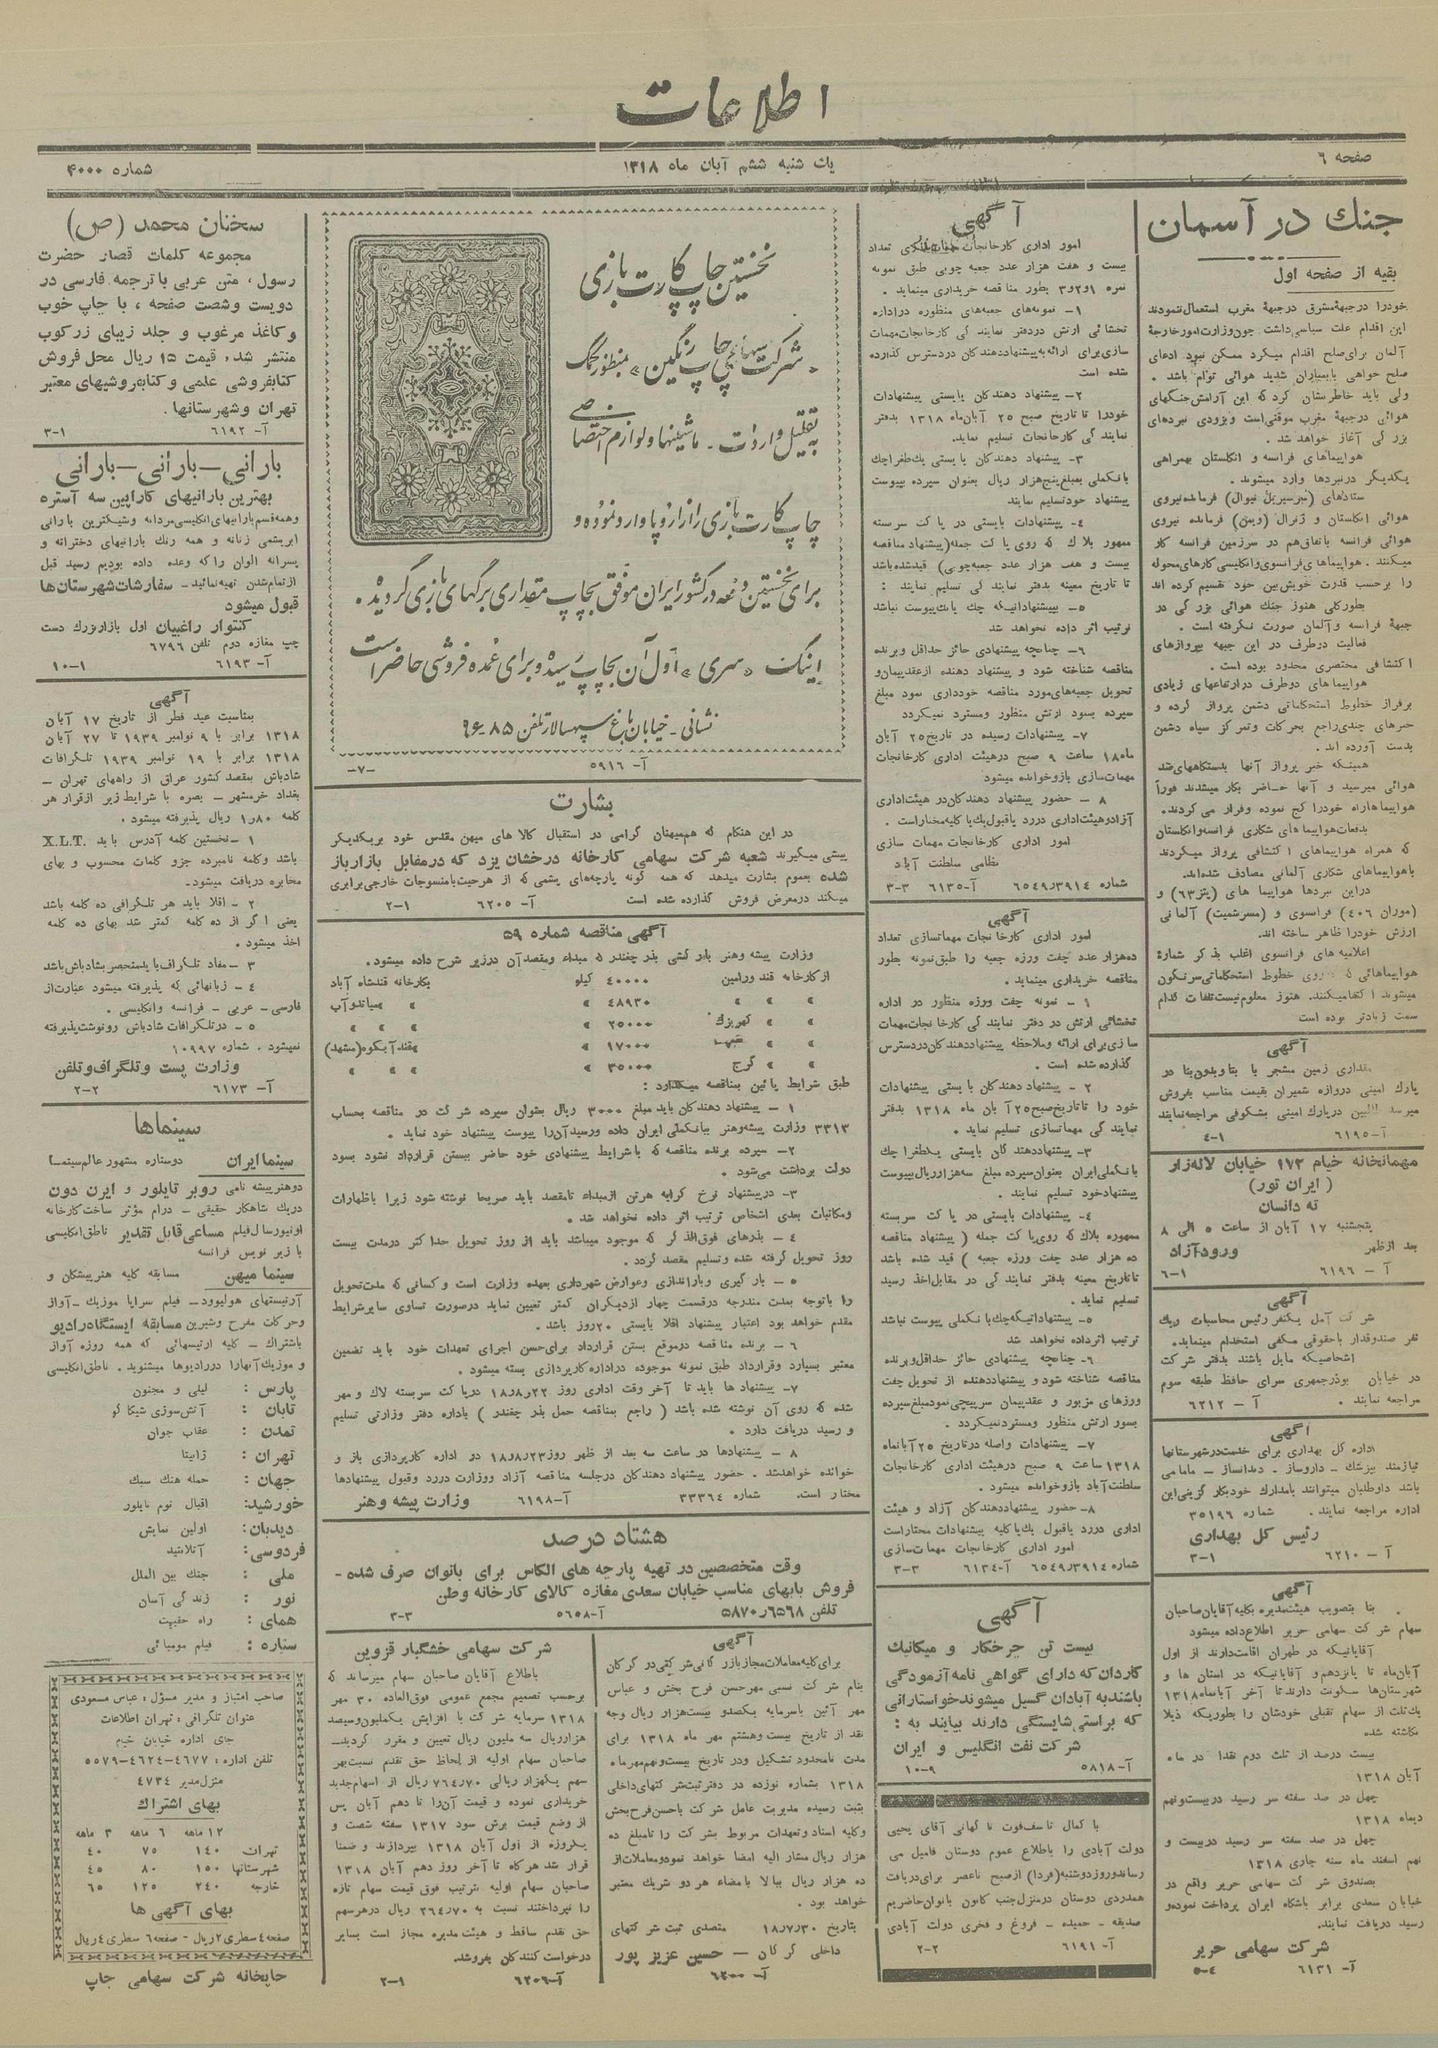 اطلاعات
صفحه ۶
یك شنبه ششم آبان ماه ۱۳۱۸
شماره ۴۰۰۰
جنك در آسمان
بقیه از صفحه اول
خودرا درجبههٔ مشرق درجبههٔ مغرب استعمال ننمودند
این اقدام علت سیاسی داشت چون وزارت امور خارجهٔ
آلمان برای صلح اقدام میکرد ممکن نبود ادعای
صلح خواهی با بمباران شدید هوائی توأم باشد .
ولی باید خاطرنشان کرد که این آرامش جنگهای
هوائی درجبههٔ مغرب موقتی است و بزودی نبردهای
بزرگی آغاز خواهد شد .
هواپیماهای فرانسه و انگلستان بهمراهی
یکدیگر درنبردها وارد میشوند .
ستادهای (سرسیریل نیوال) فرمانده نیروی
هوائی انگلستان و ژنرال (ویمن) فرمانده نیروی
هوائی فرانسه باتفاق هم در سرزمین فرانسه کار
میکنند . هواپیماهای فرانسوی وانگلیسی کارهای محوله
را برحسب قدرت خویش بین خود تقسیم کرده اند
بطورکلی هنوز جنك هوائی بزرگی در
جبههٔ فرانسه وآلمان صورت نگرفته است .
فعالیت دوطرف در این جبهه بپروازهای
اکتشافی مختصری محدود بوده است .
هواپیماهای دوطرف درارتفاعهای زیادی
برفراز خطوط استحکاماتی دشمن پرواز کرده و
خبرهای چندی راجع بحرکات وتمرکز سپاه دشمن
بدست آورده اند .
همینکه خبر پرواز آنها بدستگاههای ضد
هوائی میرسید و آنها حاضر بکار میشدند فوراً
هواپیماها راه خودرا کج نموده وفرار می کردند .
بدفعات هواپیما های شکاری فرانسه وانگلستان
که همراه هواپیماهای اکتشافی پرواز میکردند
باهواپیماهای شکاری آلمانی مصادف شده‌اند .
دراین نبردها هواپیما های (پتز ۶۳) و
(موران ۴۰۶) فرانسوی و (مسرشمیت) آلمانی
ارزش خودرا ظاهر ساخته اند.
اعلامیه های فرانسوی اغلب بذکر شمارهٔ
هواپیماهائی که روی خطوط استحکاماتی سرنگون
میشوند اکتفا میکنند. هنوز معلوم نیست تلفات کدام
سمت زیادتر بوده است
آگهی
مقداری زمین مشجر با بنا وبدون بنا در
پارك امینی دروازه شمیران بقیمت مناسب بفروش
میرسد طالبین درپارك امینی بشکوفی مراجعه نمایند
آ-۶۱۹۵ ۱-۴
مهمانخانه خیام ۱۷۳ خیابان لاله‌زار
( ایران تور)
ته دانسان
پنجشنبه ۱۷ آبان از ساعت ۵ الی ۸
بعد ازظهر ورود آزاد
آ - ۶۱۹۶ ۱-۶
آگهی
شرکت آمل یکنفر رئیس محاسبات ویك
نفر صندوقدار باحقوقی مکفی استخدام مینماید.
اشخاصیکه مایل باشند بدفتر شرکت
در خیابان بوذرجمهری سرای حافظ طبقه سوم
مراجعه نمایند . آ - ۶۲۱۲
آگهی
اداره کل بهداری برای خدمت درشهرستانها
نیازمند بپزشك - داروساز . دندانساز - مامامی
باشد داوطلبان میتوانند بامدارك خود بکارگزینی این
اداره مراجعه نمایند . شماره ۳۵۱۹۶
رئیس کل بهداری
آ - ۶۲۱۰ ۱-۳
آگهی
بنا بتصویب هیئت مدیره بکلیه آقایان صاحبان
سهام شرکت سهامی حریر اطلاع داده میشود
آقایانیکه در طهران اقامت دارند از اول
آبان ماه تا پانزدهم و آقایانیکه در استان ها و
شهرستان‌ها سکونت دارند تا آخر آبانماه ۱۳۱۸
یك ثلث از سهام تقبلی خودشان را بطوریکه ذیلا
نگاشته شده
بیست درصد از ثلث دوم نقدا در ماه
آبان ۱۳۱۸
چهل در صد سفته سر رسید دربیست ونهم
دیماه ۱۳۱۸
چهل در صد سفته سر رسید دربیست و
نهم اسفند ماه سنه جاری ۱۳۱۸
بصندوق شرکت سهامی حریر واقع در
خیابان سعدی برابر باشگاه ایران پرداخت نموده و
رسید دریافت نمایند.
شرکت سهامی حریر
آ- ۶۱۳۱ ۴-۵
آگهی
امور اداری کارخانجات تعداد
بیست و هفت هزار عدد جعبه چوبی طبق نمونه
نمره ۱و۲و۳ بطور مناقصه خریداری مینماید .
۱- نمونه‌های جعبه‌های منظوره دراداره
تخشائی ارتش دردفتر نمایندگی کارخانجات مهمات
سازی برای ارائه به پیشنهاد دهندگان دردسترس گذارده
شده است
۲- پیشنهاد دهندگان بایستی پیشنهادات
خودرا تا تاریخ صبح ۲۵ آبان ماه ۱۳۱۸ بدفتر
نمایندگی کارخانجات تسلیم نماید.
۳- پیشنهاد دهندگان بایستی یك طغرا چك
بانك ملی بمبلغ پنج هزار ریال بعنوان سپرده بپیوست
پیشنهاد خود تسلیم نمایند
۴- پیشنهادات بایستی در پاکت سربسته
ممهور بلاك که روی پاکت جمله (پیشنهاد مناقصه
بیست و هفت هزار عدد جعبه چوبی) قید شده باشد
تا تاریخ معینه بدفتر نمایندگی تسلیم نمایند :
۵- به پیشنهاداتیکه چك بانك پیوست نباشد
ترتیب اثر داده نخواهد شد
۶- چنانچه پیشنهادی حائز حداقل و برنده
مناقصه شناخته شود و پیشنهاد دهنده ازعقد پیمان و
تحویل جعبه‌های مورد مناقصه خودداری نمود مبلغ
سپرده بسود ارتش منظور ومسترد نمیگردد
۷- پیشنهادات رسیده در تاریخ ۲۵ آبان
ماه ۱۸ ساعت ۹ صبح درهیئت اداری کارخانجات
مهمات سازی باز وخوانده میشود
۸ - حضور پیشنهاد دهندگان در هیئت اداری
آزاد وهیئت اداری دررد یاقبول یك یا کلیه مختار است .
امور اداری کارخانجات مهمات سازی
نظامی سلطنت آباد
شماره ۶۵۴۹٫۳۹۱۴ آ-۶۱۳۵ ۳-۳
آگهی
امور اداری کارخانجات مهماتسازی تعداد
ده‌هزار عدد چفت وزره جعبه را طبق نمونه بطور
مناقصه خریداری مینماید.
۱ - نمونه چفت وزره منظور در اداره
تخشائی ارتش در دفتر نمایندگی کارخانجات مهمات
سازی برای ارائه وملاحظه پیشنهاد دهندگان دردسترس
گذارده شده است .
۲ - پیشنهاد دهندگان بایستی پیشنهادات
خود را تا تاریخ صبح ۲۵ آبان ماه ۱۳۱۸ بدفتر
نمایندگی مهماتسازی تسلیم نماید .
۳- پیشنهاد دهندگان بایستی یکطغرا چك
بانك ملی ایران بعنوان سپرده مبلغ سه‌هزار ریال بپیوست
پیشنهاد خود تسلیم نمایند .
۴- پیشنهادات بایستی در پاکت سربسته
ممهوره بلاك که روی پاکت جمله ( پیشنهاد مناقصه
ده هزار عدد چفت وزره جعبه ) قید شده باشد
تا تاریخ معینه بدفتر نمایندگی در مقابل اخذ رسید
تسلیم نماید .
۵- پیشنهاداتیکه چك بانك ملی پیوست نباشد
ترتیب اثر داده نخواهد شد
۶- چنانچه پیشنهادی حائز حداقل و برنده
مناقصه شناخته شود و پیشنهاد دهنده از تحویل چفت
وزرهای مزبور و عقد پیمان سرپیچی نمود مبلغ سپرده
بسود ارتش منظور ومسترد نمیگردد .
۷- پیشنهادات واصله درتاریخ ۲۵ آبانماه
۱۳۱۸ ساعت ۹ صبح درهیئت اداری کارخانجات
سلطنت آباد باز وخوانده میشود .
۸- حضور پیشنهاد دهندگان آزاد و هیئت
اداری دررد یاقبول یك یا کلیه پیشنهادات مختار است
امور اداری کارخانجات مهمات سازی
شماره ۶۵۴۹٫۳۹۱۴ آ-۶۱۳۴ ۳-۳
آگهی
بیست تن چرخکار و میکانیك
کاردان که دارای گواهی نامه آزمودگی
باشند به آبادان گسیل میشوند خواستارانی
که براستی شایستگی دارند بیایند به :
شرکت نفت انگلیس و ایران
آ-۵۸۱۸ ۹-۱۰
با کمال تأسف فوت ناگهانی آقای یحیی
دولت آبادی را باطلاع عموم دوستان فامیل می
رساند وروز دوشنبه (فردا) ازصبح تاعصر برای دریافت
همدردی دوستان درمنزل جنب کانون بانوان حاضریم
صدیقه - حمیده - فروغ و فخری دولت آبادی
آ- ۶۱۹۱ ۲-۲
نخستین چاپ کارت بازی
«شرکت سهامی چاپ رنگین» بمنظور کمك
به تقلیل واردات - ماشینها و لوازم اختصاصی
چاپ کارت بازی را از اروپا وارد نموده و
برای نخستین دفعه در کشور ایران موفق بچاپ مقداری برگهای بازی گردید .
اینك «سری» اول آن بچاپ رسیده و برای عمده فروشی حاضر است
نشانی - خیابان باغ سپهسالار تلفن ۸۵-۹۶
آ- ۵۹۱۶ -۷-
بشارت
در این هنگام که هم‌میهنان گرامی در استقبال کالا های میهن مقدس خود بریکدیگر
پیشی میگیرند شعبه شرکت سهامی کارخانه درخشان یزد که درمقابل بازار باز
شده بعموم بشارت میدهد که همه گونه پارچه‌های پشمی که از هرحیث بامنسوجات خارجی برابری
میکند درمعرض فروش گذارده شده است آ- ۶۲۰۵ ۱-۲
آگهی مناقصه شماره ۵۹
وزارت پیشه وهنر بارکشی بذر چغندر که مبداء ومقصد آن درزیر شرح داده میشود .
ازکارخانه قند ورامین ۴۰۰۰۰ کیلو بکارخانه قند شاه آباد
» » » ۴۸۹۳۰ » » میاندوآب
» » کهریزك ۲۵۰۰۰ » » » »
» » ۱۷۰۰۰ » بقند آبکوه (مشهد)
» » کرج ۳۵۰۰۰ » » » »
طبق شرایط پائین بمناقصه میگذارد :
۱ - پیشنهاد دهندگان باید مبلغ ۳۰۰۰ ریال بعنوان سپرده شرکت در مناقصه بحساب
۳۳۱۳ وزارت پیشه وهنر ببانك ملی ایران داده ورسید آن را پیوست پیشنهاد خود نماید .
۲- سپرده برنده مناقصه که با شرایط پیشنهادی خود حاضر ببستن قرارداد نشود بسود
دولت برداشت می‌شود .
۳- درپیشنهاد نرخ کرایه هرتن ازمبداء تامقصد باید صریحا نوشته شود زیرا باظهارات
ومکاتبات بعدی اشخاص ترتیب اثر داده نخواهد شد .
۴ - بذرهای فوق الذکر که موجود میباشد باید از روز تحویل حداکثر درمدت بیست
روز تحویل گرفته شده وتسلیم مقصد گردد .
۵ - بارگیری وباراندازی وعوارض شهرداری بعهده وزارت است و کسانی که مدت تحویل
را باتوجه بمدت مندرجه درقسمت چهار ازدیگران کمتر تعیین نماید درصورت تساوی سایر شرایط
مقدم خواهد بود اعتبار پیشنهاد اقلا بایستی ۲۰ روز باشد .
۶ - برنده مناقصه درموقع بستن قرارداد برای حسن اجرای تعهدات خود باید تضمین
معتبر بسپارد وقرارداد طبق نمونه موجوده دراداره کارپردازی بسته میشود .
۷- پیشنهاد ها باید تا آخر وقت اداری روز ۱۸٫۸٫۲۲ درپاکت سربسته لاك و مهر
شده که روی آن نوشته شده باشد ( راجع بمناقصه حمل بذر چغندر ) باداره دفتر وزارتی تسلیم
و رسید دریافت دارد .
۸ - پیشنهادها در ساعت سه بعد از ظهر روز ۱۸٫۸٫۲۳ در اداره کارپردازی باز و
خوانده خواهد شد . حضور پیشنهاد دهندگان درجلسه مناقصه آزاد ووزارت دررد وقبول پیشنهادها
مختار است. شماره ۳۳۳۶۴ آ-۶۱۹۸ وزارت پیشه وهنر
هشتاد درصد
وقت متخصصین در تهیه پارچه های الکاس برای بانوان صرف شده -
فروش ببهای مناسب خیابان سعدی مغازه کالای کارخانه وطن
تلفن ۵۸۷۰٫۶۵۶۸ آ-۵۶۵۸ ۳-۳
آگهی
برای کلیه معاملات مجاز بازرگانی شرکتی در گرگان
بنام شرکت نسبی مهرحسن فرح بخش و عباس
مهر آئین باسرمایه یکصدو بیست هزار ریال وجه
نقد از تاریخ بیست وهشتم مهر ماه ۱۳۱۸ برای
مدت نامحدود تشکیل ودر تاریخ بیست ونهم مهرماه
۱۳۱۸ بشماره نوزده در دفتر ثبت شرکتهای داخلی
بثبت رسیده مدیریت عامل شرکت باحسن فرح بخش
وکلیه اسناد وتعهدات مربوط بشرکت را تامبلغ ده
هزار ریال مشار الیه امضا خواهد نمود ومعاملات از
ده هزار ریال ببالا با امضاء هر دو شریك معتبر
خواهد بود .
بتاریخ ۱۸٫۷٫۳۰ متصدی ثبت شرکتهای
داخلی گرگان - حسین عزیز پور
آ- ۶۲۰۰
شرکت سهامی خشگبار قزوین
باطلاع آقایان صاحبان سهام میرساند که
برحسب تصمیم مجمع عمومی فوق‌العاده ۳۰ مهر
۱۳۱۸ سرمایه شرکت با افزایش یکملیون وسیصد
هزار ریال سه ملیون ریال تعیین و مقرر گردید-
صاحبان سهام اولیه از لحاظ حق تقدم نسبت بهر
سهم یکهزار ریالی ۷۶۴٫۷۰ ریال از اسهام جدید
خریداری نموده و قیمت آن را تا دهم آبان پس
از وضع قیمت برش سود ۱۳۱۷ سفته شصت و
یکروزه از اول آبان ۱۳۱۸ بپردازند و ضمنا
قرار شد هرگاه تا آخر روز دهم آبان ۱۳۱۸
صاحبان سهام اولیه بترتیب فوق قیمت سهام تازه
را نپرداختند نسبت به ۲۶۴٫۷۰ ریال درهرسهم
حق تقدم ساقط و هیئت مدیره مجاز است بسایر
درخواست کنندگان بفروشد.
آ-۶۲۰۶ ۱-۲
سخنان محمد (ص)
مجموعه کلمات قصار حضرت
رسول ، متن عربی با ترجمه فارسی در
دویست وشصت صفحه ، با چاپ خوب
و کاغذ مرغوب و جلد زیبای زرکوب
منتشر شده، قیمت ۱۵ ریال محل فروش
کتابفروشی علمی و کتابفروشیهای معتبر
تهران وشهرستانها.
آ- ۶۱۹۲ ۱-۳
بارانی-بارانی-بارانی
بهترین بارانیهای کاراپین سه آستره
وهمه قسم بارانیهای انگلیسی مردانه وشیکترین بارانی
ابریشمی زنانه و همه رنك بارانیهای دخترانه و
پسرانه الوان را که وعده داده بودیم رسید قبل
ازتمام شدن تهیه نمائید- سفارشات شهرستان‌ها
قبول میشود
کنتوار راغبیان اول بازار بزرك دست
چپ مغازه دوم تلفن ۶۷۹۶
آ- ۶۱۹۳ ۱-۱۰
آگهی
بمناسبت عید فطر از تاریخ ۱۷ آبان
۱۳۱۸ برابر با ۹ نوامبر ۱۹۳۹ تا ۲۷ آبان
۱۳۱۸ برابر با ۱۹ نوامبر ۱۹۳۹ تلگرافات
شادباش بمقصد کشور عراق از راههای تهران -
بغداد خرمشهر - بصره با شرایط زیر ازقرار هر
کلمه ۱٫۸۰ ریال پذیرفته میشود .
۱ - نخستین کلمه آدرس باید X.L.T.
باشد وکلمه نامبرده جزو کلمات محسوب و بهای
مخابره دریافت میشود-
۲ - اقلا باید هر تلگرافی ده کلمه باشد
یعنی اگر از ده کلمه کمتر شد بهای ده کلمه
اخذ میشود .
۳ - مفاد تلگراف باید منحصر بشادباش باشد
۴ - زبانهائی که پذیرفته میشود عبارت از
فارسی - عربی - فرانسه وانگلیسی .
۵ - درتلگرافات شادباش رونوشت پذیرفته
نمیشود. شماره ۱۰۹۹۷
وزارت پست وتلگراف وتلفن
آ- ۶۱۷۳ ۲-۲
سینماها
سینما ایران دوستاره مشهور عالم سینما
دوهنرپیشه نامی روبر تایلور و ایرن دون
دریك شاهکار حقیقی - درام مؤثر ساخت کارخانه
اونیورسال فیلم مساعی قابل تقدیر ناطق انگلیسی
با زیر نویس فرانسه
سینما میهن مسابقه کلیه هنرپیشگان و
آرتیستهای هولیوود- فیلم سراپا موزیك -آواز
وحرکات مفرح وشیرین مسابقه ایستگاه رادیو
باشتراك - کلیه ارتیستهائی که همه روزه آواز
و موزیك آنهارا دررادیوها میشنوید. ناطق انگلیسی
پارس : لیلی و مجنون
تابان : آتش‌سوزی شیکاگو
تمدن : عقاب جوان
تهران : ژانیتا
جهان: حمله هنك سبك
خورشید: اقبال توم تایلور
دیدبان: اولین نمایش
فردوسی: آتلانتید
ملی : جنك بین الملل
نور : زندگی آسان
همای : راه حقیقت
ستاره : فیلم مومیائی
صاحب امتیاز و مدیر مسؤل : عباس مسعودی
عنوان تلگرافی : تهران اطلاعات
جای اداره خیابان خیام
تلفن اداره : ۴۶۷۷-۴۶۲۴-۵۵۷۹
منزل مدیر ۴۷۳۴
بهای اشتراك
۱۲ ماهه ۶ ماهه ۳ ماهه
تهران ۱۴۰ ۷۵ ۴۰
شهرستانها ۱۵۰ ۸۰ ۴۵
خارجه ۲۴۰ ۱۲۵ ۶۵
بهای آگهی ها
صفحه ۴ سطری ۲ ریال - صفحه ۶ سطری ۴ ریال
چاپخانه شرکت سهامی چاپ